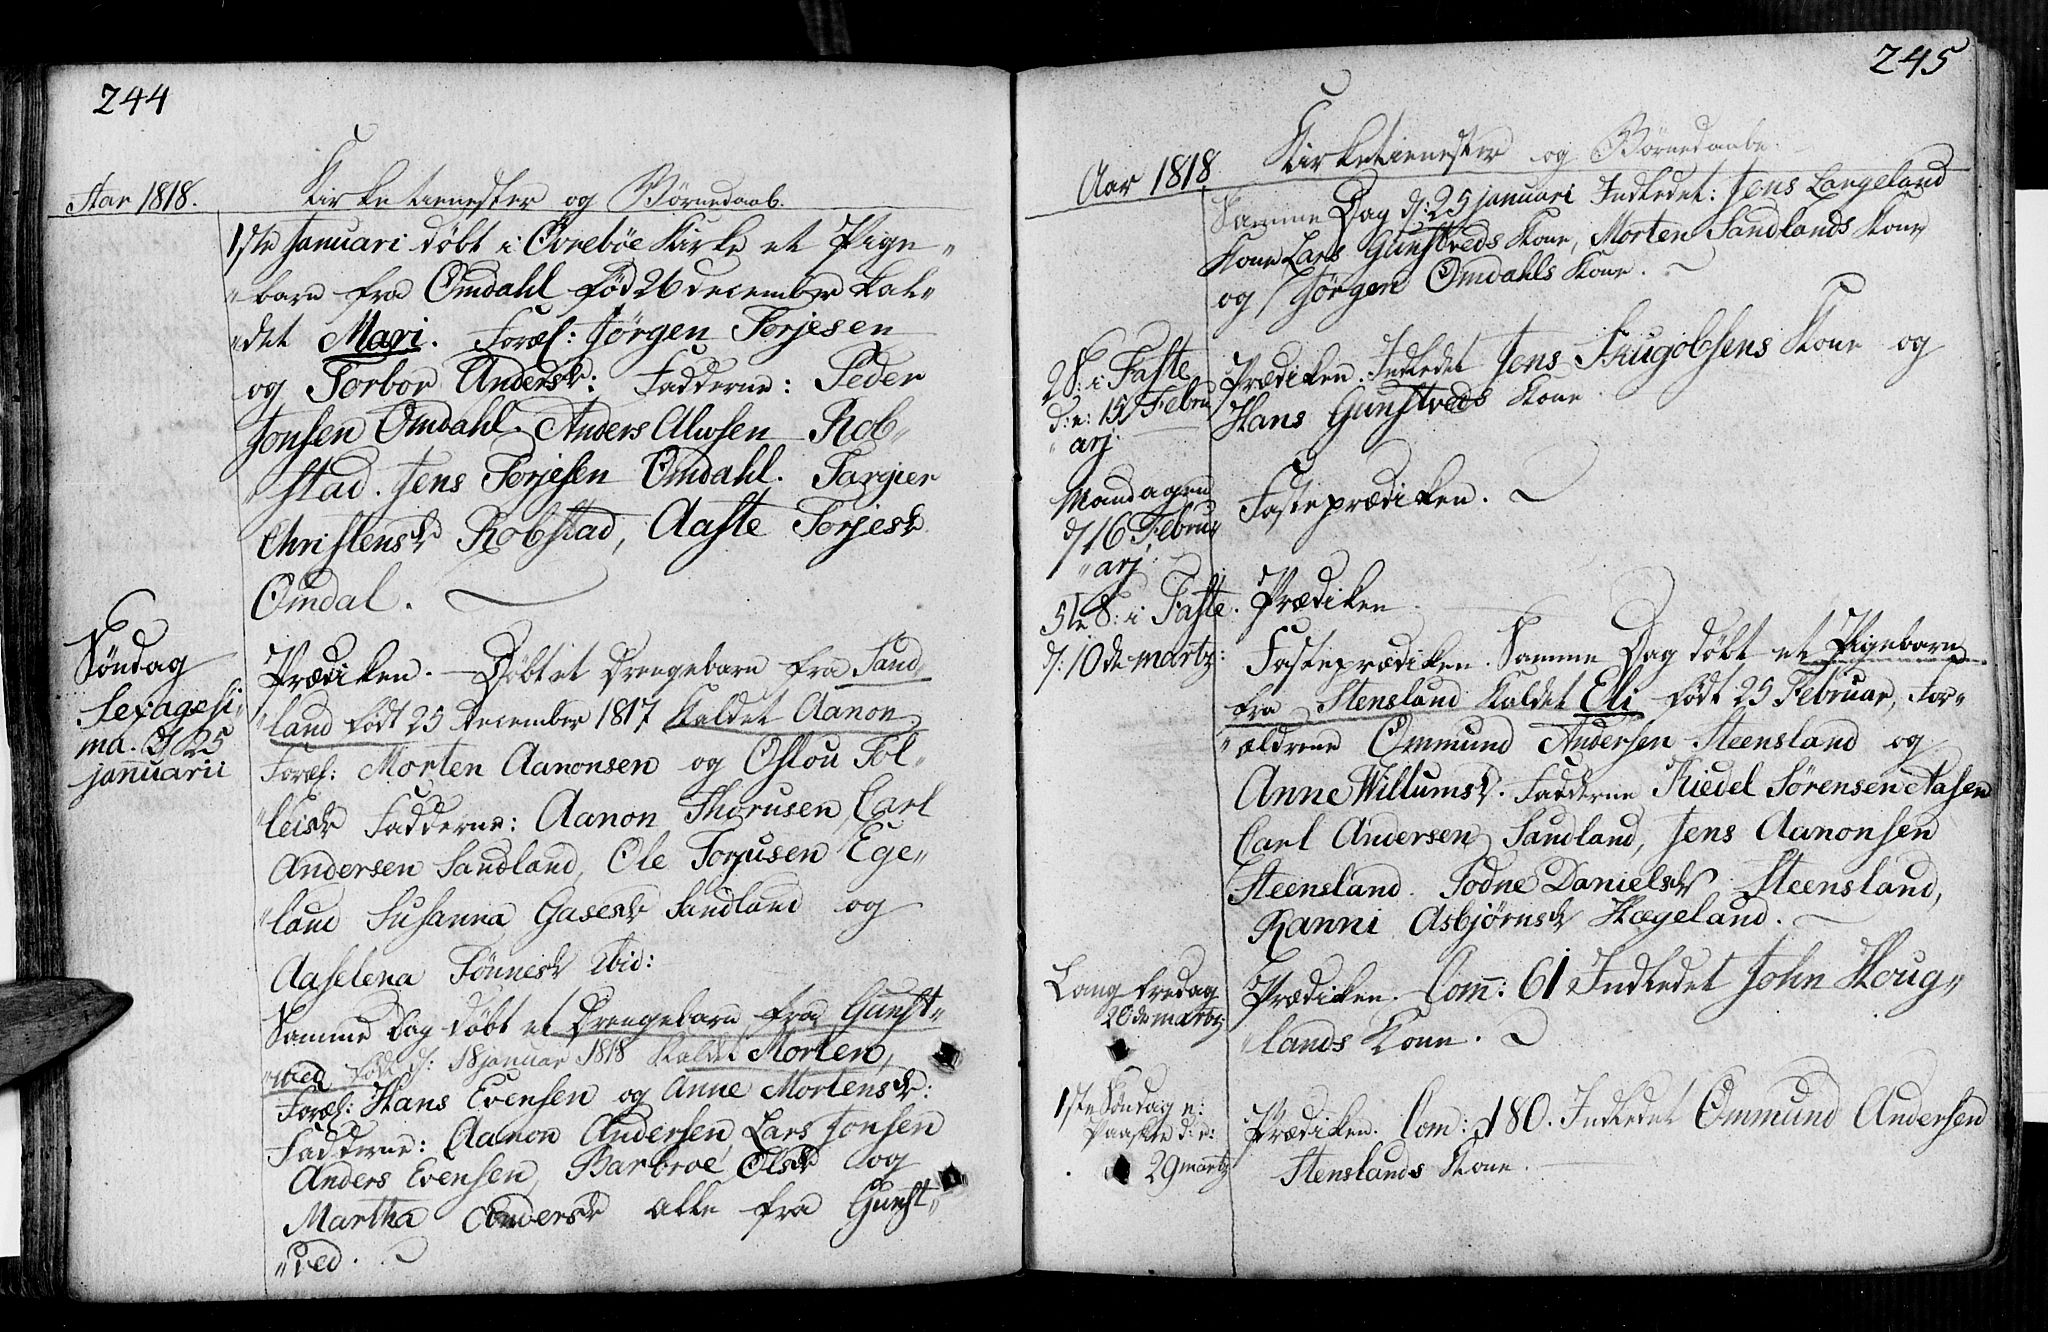 244
Aar 1818.
Kirketienester og Börnedaab.
1ste Januari döbt i Övreböe Kirke et Pige„
„barn fra Omdahl Föd 26 december kal„
„det Mari. Foræl: Jörgen Torjesen
og Torbor Andersdr: Fadderne: Peder
Jonsen Omdahl. Anders Alwsen Rob„
„stad. Jens Torjesen Omdahl. Targier
Christensdr Robstad, Aaste Torjesdr
Omdal.
Söndag
Sexagesi„
ma. d 25
januarii
Prædiken. Döbt et Drengebarn fra Sand„
„land født 25 december 1817 kaldet Aanon
Foræl: Morten Aanonsen og Oslou Tol„
„leisdr Fadderne: Aanon Thorusen, Carl
Andersen Sandland, Ole Torjusen Ege„
„land Susanna Gasesdr Sandland og
Aaselena Tönnesdr Ibid:
Samme Dag döbt et Drengebarn fra Gunst„
„ved föd d: 18 januar 1818 kaldet Morten,
Foræl: Hans Evensen og Anne Mortensdr:
Fadderne: Aanon Andersen, Lars Jonsen
Anders Evensen, Barbroe Olsdr og
Martha Andersdr alle fra Gunst„
„ved.
245
Aar 1818
Kirketienester og Börnedaabe.
Samme Dag d: 25 januari Indledet: Jens Langeland
Kone Lars Gunstveds Kone, Morten Sandlands Kone
og Jörgen Omdahls Kone.
2 S: i Faste
d:e: 15 Febru
„arj.
Prædiken. Indledet Jens Skugobsens Kone og
Hans Gunstveds Kone.
Mandagen
d/16 Febru„
„arj.
Fasteprædiken.
5te S: i Faste.
Prædiken.
d: 10de martz:
Fasteprædiken. Samme Dag döbt et Pigebarn
fra Stensland kaldet Eli født 25 Februar, For„
„ældrene Ommund Andersen Steensland og
Anne Willumsdr. Fadderne Kiedel Sörensen Aasen
Carl Andersen Sandland, Jens Aanonsen
Steensland. Todne Danielsdr Steensland,
Ranni Asbjörnsdr Hægeland.
Lang fredag
20de martz
Prædiken. Com: 61 Indledet John Houg„
„lands Kone.
1ste Söndag e:
Paaske d:e:
29 martz
Prædiken. Com: 180. Indledet Ommund Andersen
Stenslands Kone.